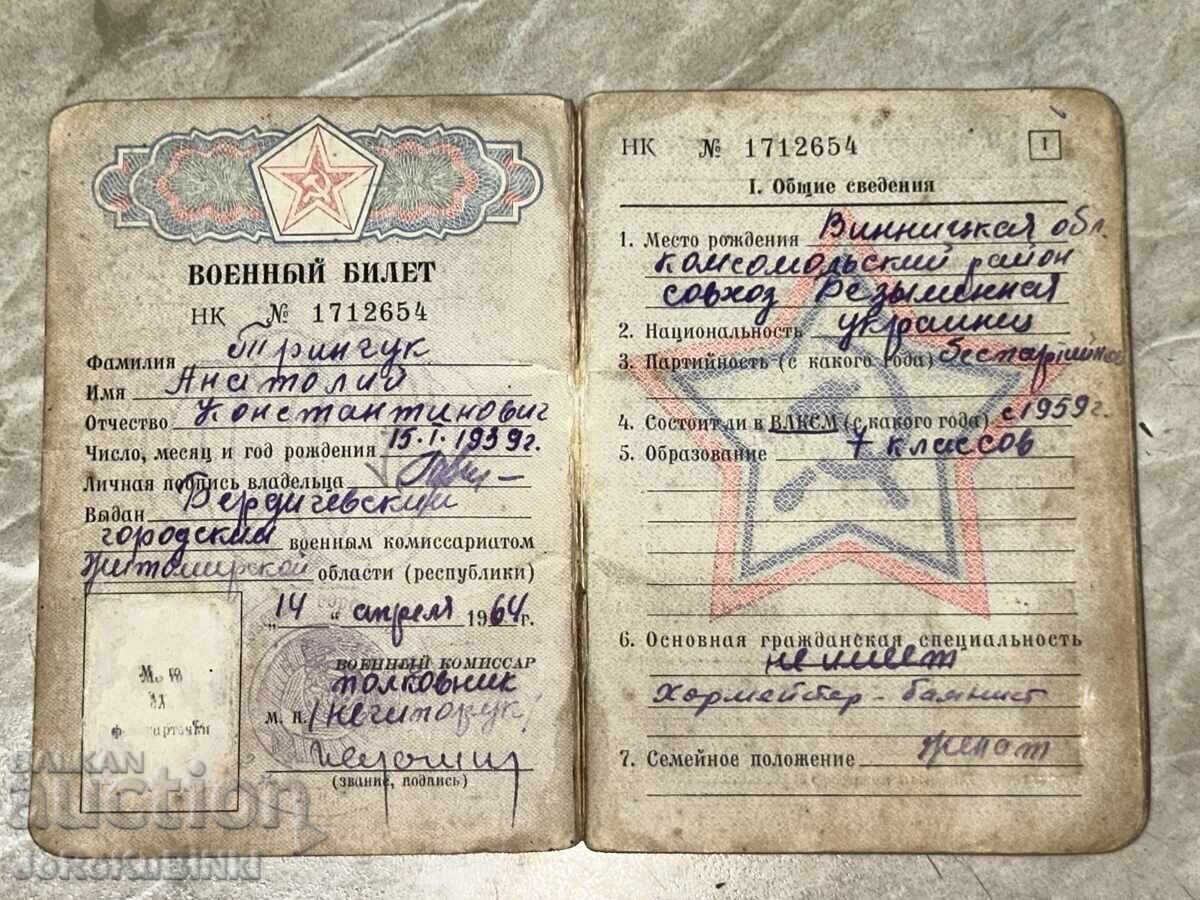 ВОЕННЫЙ БИЛЕТ
НК № 1712654
Фамилия Трингук
Имя Анатолий
Отчество Константинович
Число, месяц и год рождения 15.I.1939г.
Личная подпись владельца
Выдан Бердичевский
городским военным комиссариатом
Житомирской области (республики)
„14" апреля 1964г.
ВОЕННЫЙ КОМИССАР
полковник
М. П.
(звание, подпись)
НК № 1712654
1
I. Общие сведения
1. Место рождения Винницкая обл.
Комсомольский район
совхоз Безыменная
2. Национальность украинец
3. Партийность (с какого года) беспартийный
4. Состоит ли в ВЛКСМ (с какого года) с 1959г.
5. Образование 7 классов
6. Основная гражданская специальность
не имеет
Хормейстер - баянист
7. Семейное положение женат
BALKAN
auction
JOKOKUBINKI